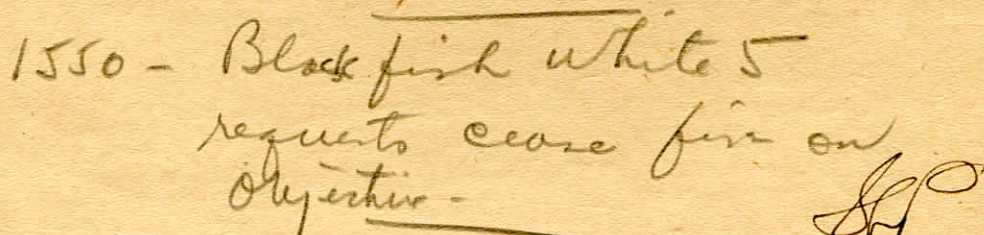 1550 - Blackfish White 5
requests cease fire on
Objective -